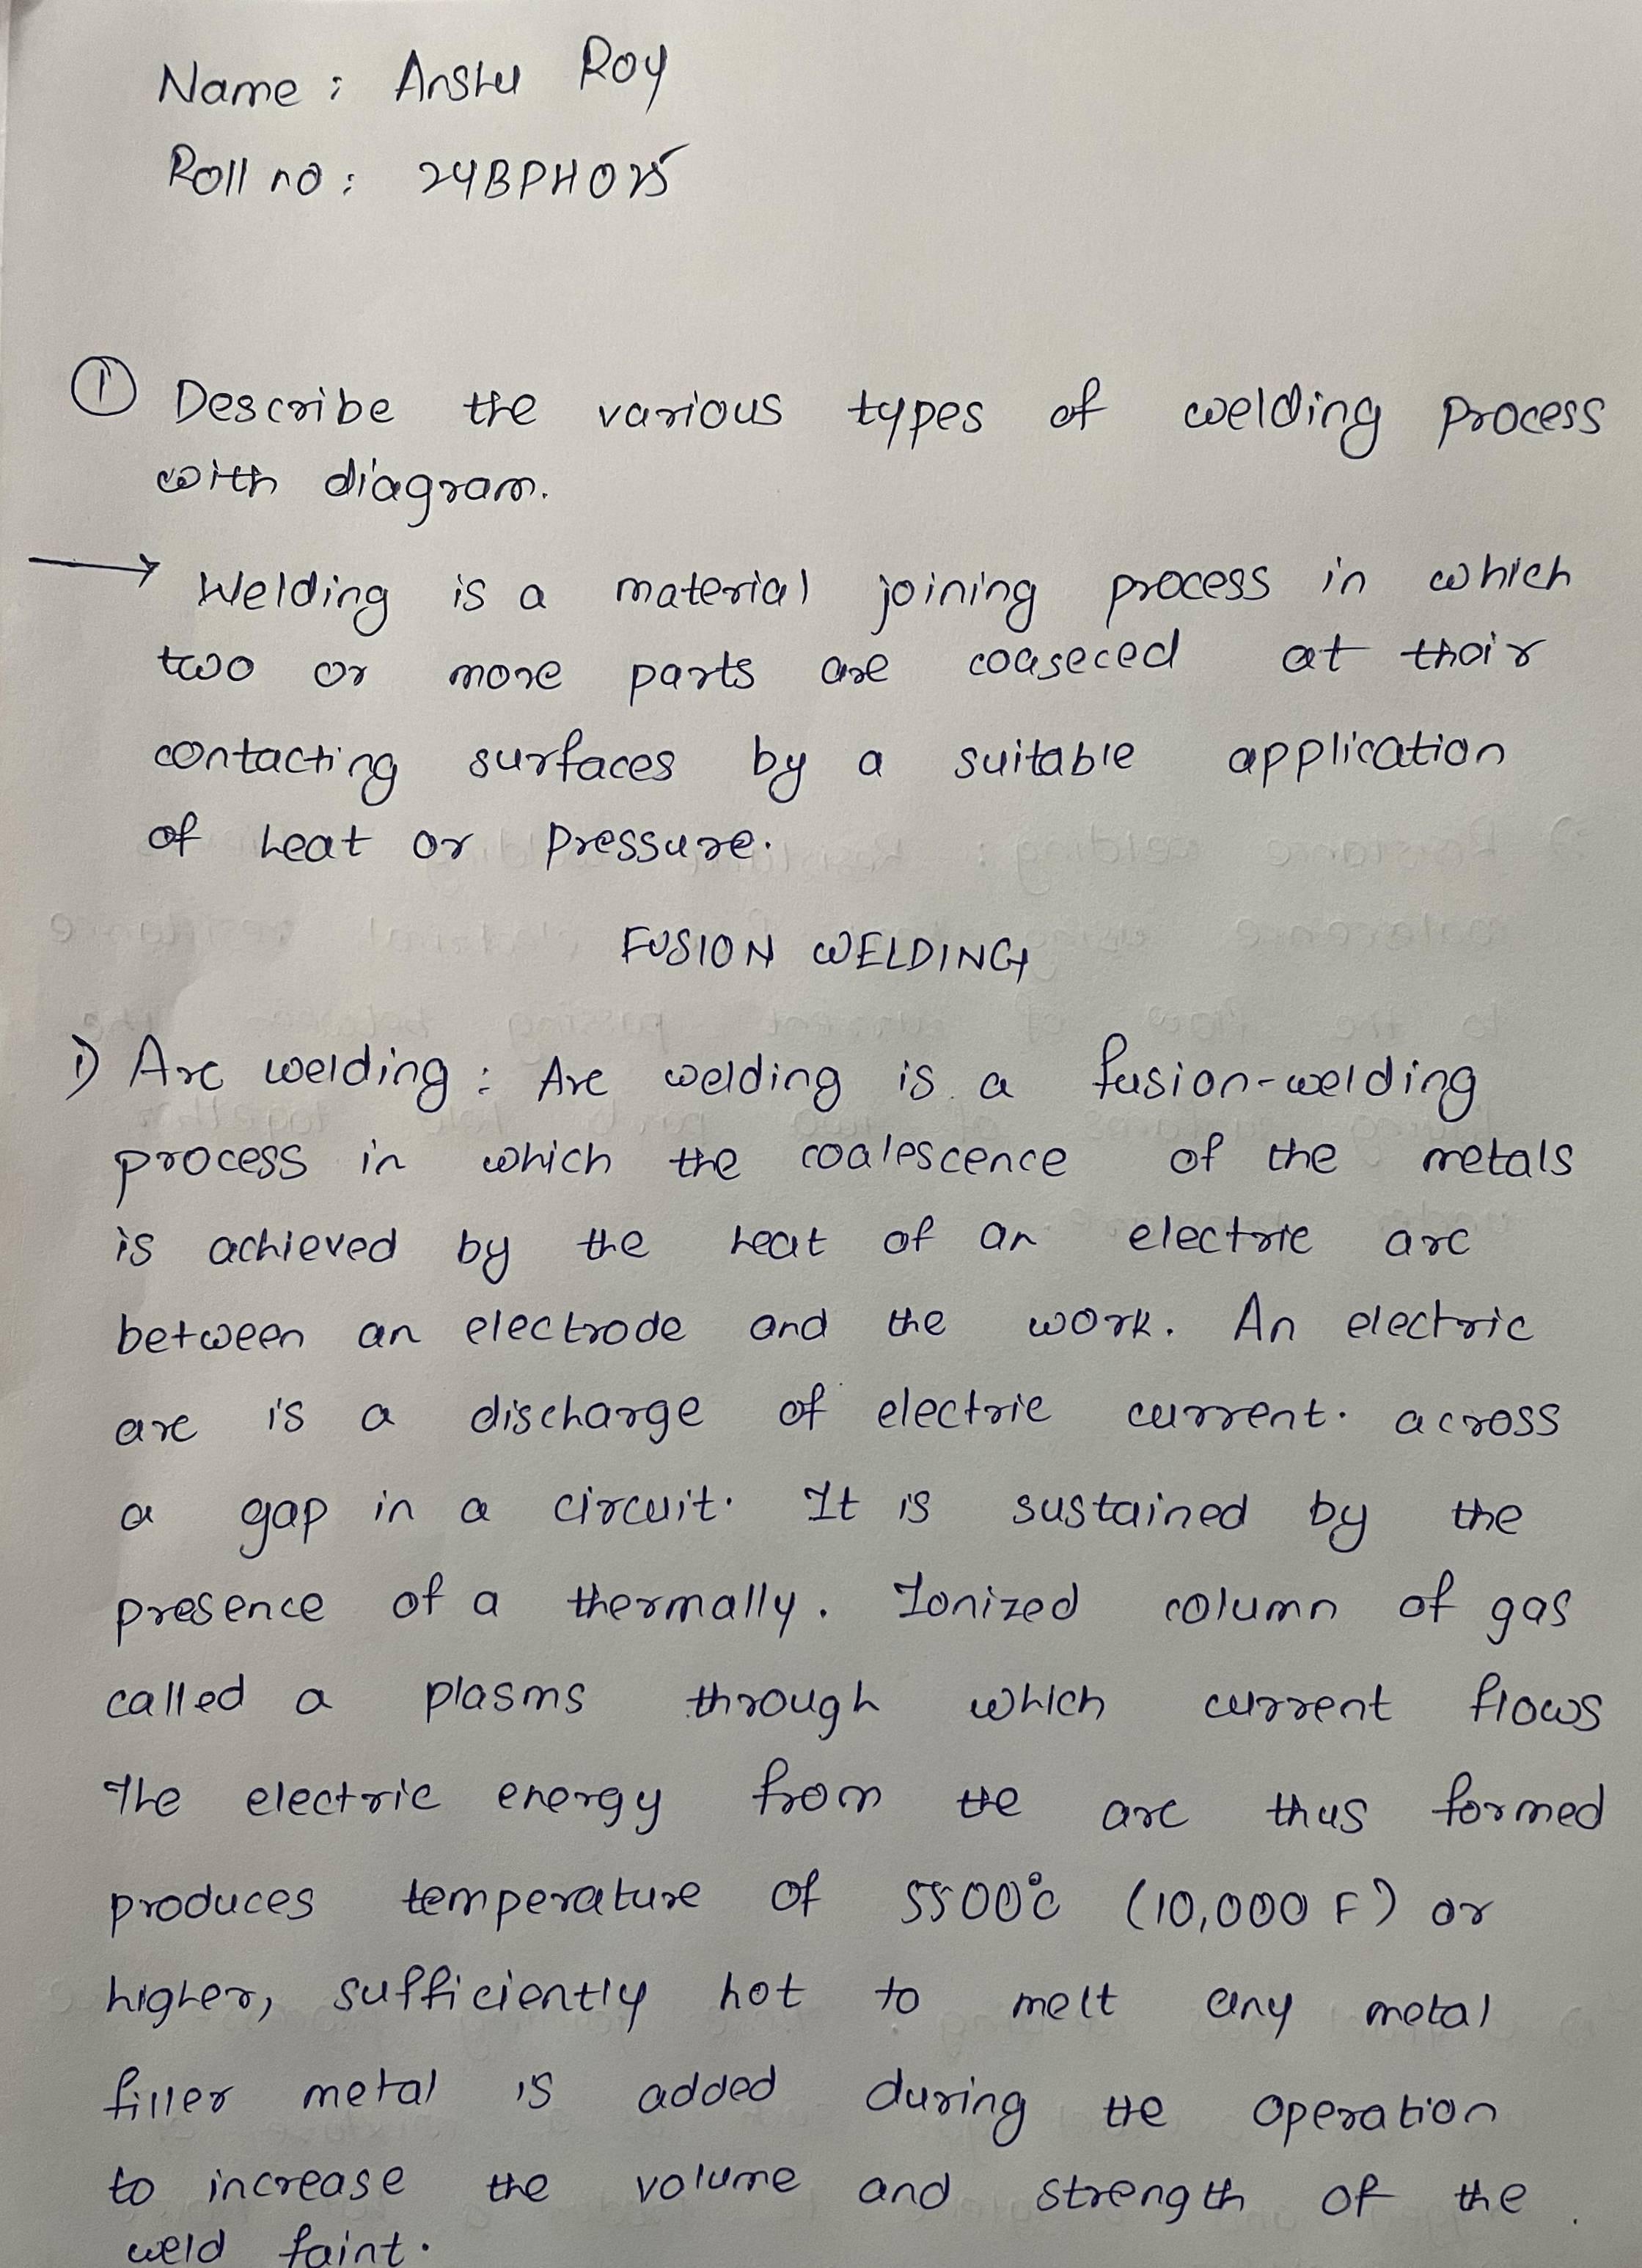 Name : Anshu Roy
Roll no : 24BPH025
① Describe the various types of welding process
with diagram.
→ Welding is a material joining process in which
two or more parts are coaseced at thoir
contacting surfaces by a suitable application
of heat or pressure.
FUSION WELDING
1) Arc welding : Arc welding is a fusion-welding
process in which the coalescence of the metals
is achieved by the heat of an electric arc
between an electrode and the work. An electric
arc is a discharge of electric current. across
a gap in a circuit. It is sustained by the
presence of a thermally. Ionized column of gas
called a plasms through which current flows
The electric energy from the arc thus formed
produces temperature of 5500°c (10,000 F) or
higher, sufficiently hot to melt any metal
filler metal is added during the operation
to increase the volume and strength of the
weld faint.